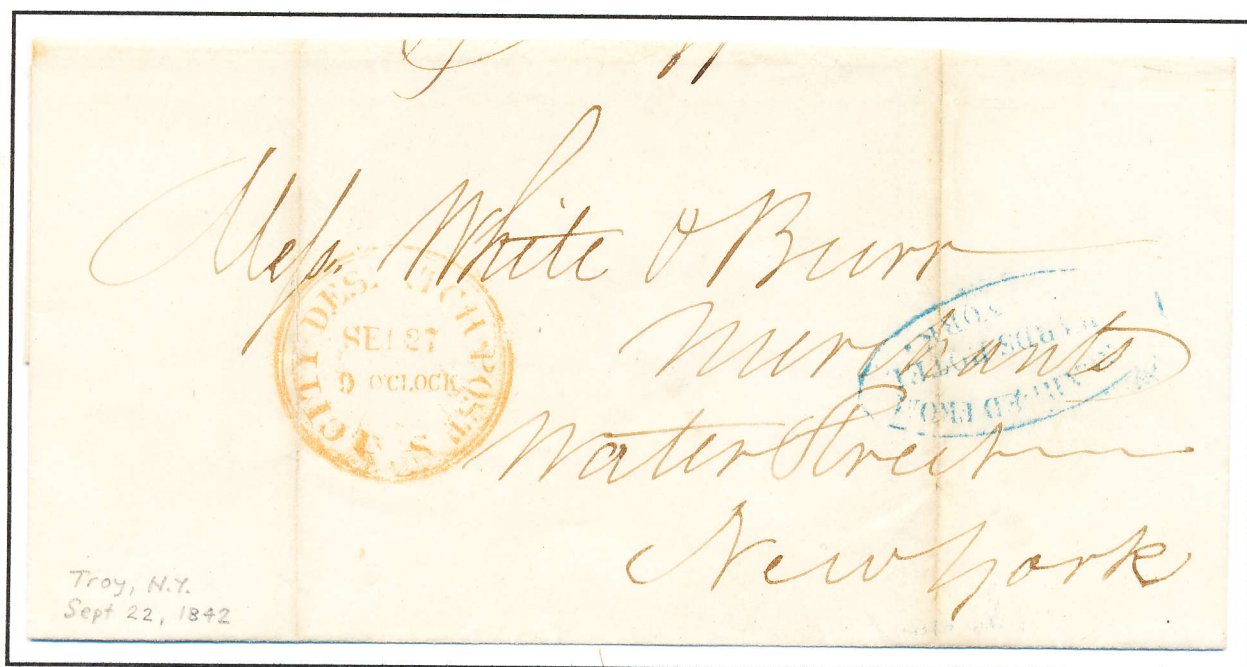 Mess. White & Burr
Merchants
Water Street
New York
U.S. CITY DESPATCH POST
SEP 27
9 O'CLOCK
YORK
HOTEL
FROM
Troy, N.Y.
Sept 22, 1842